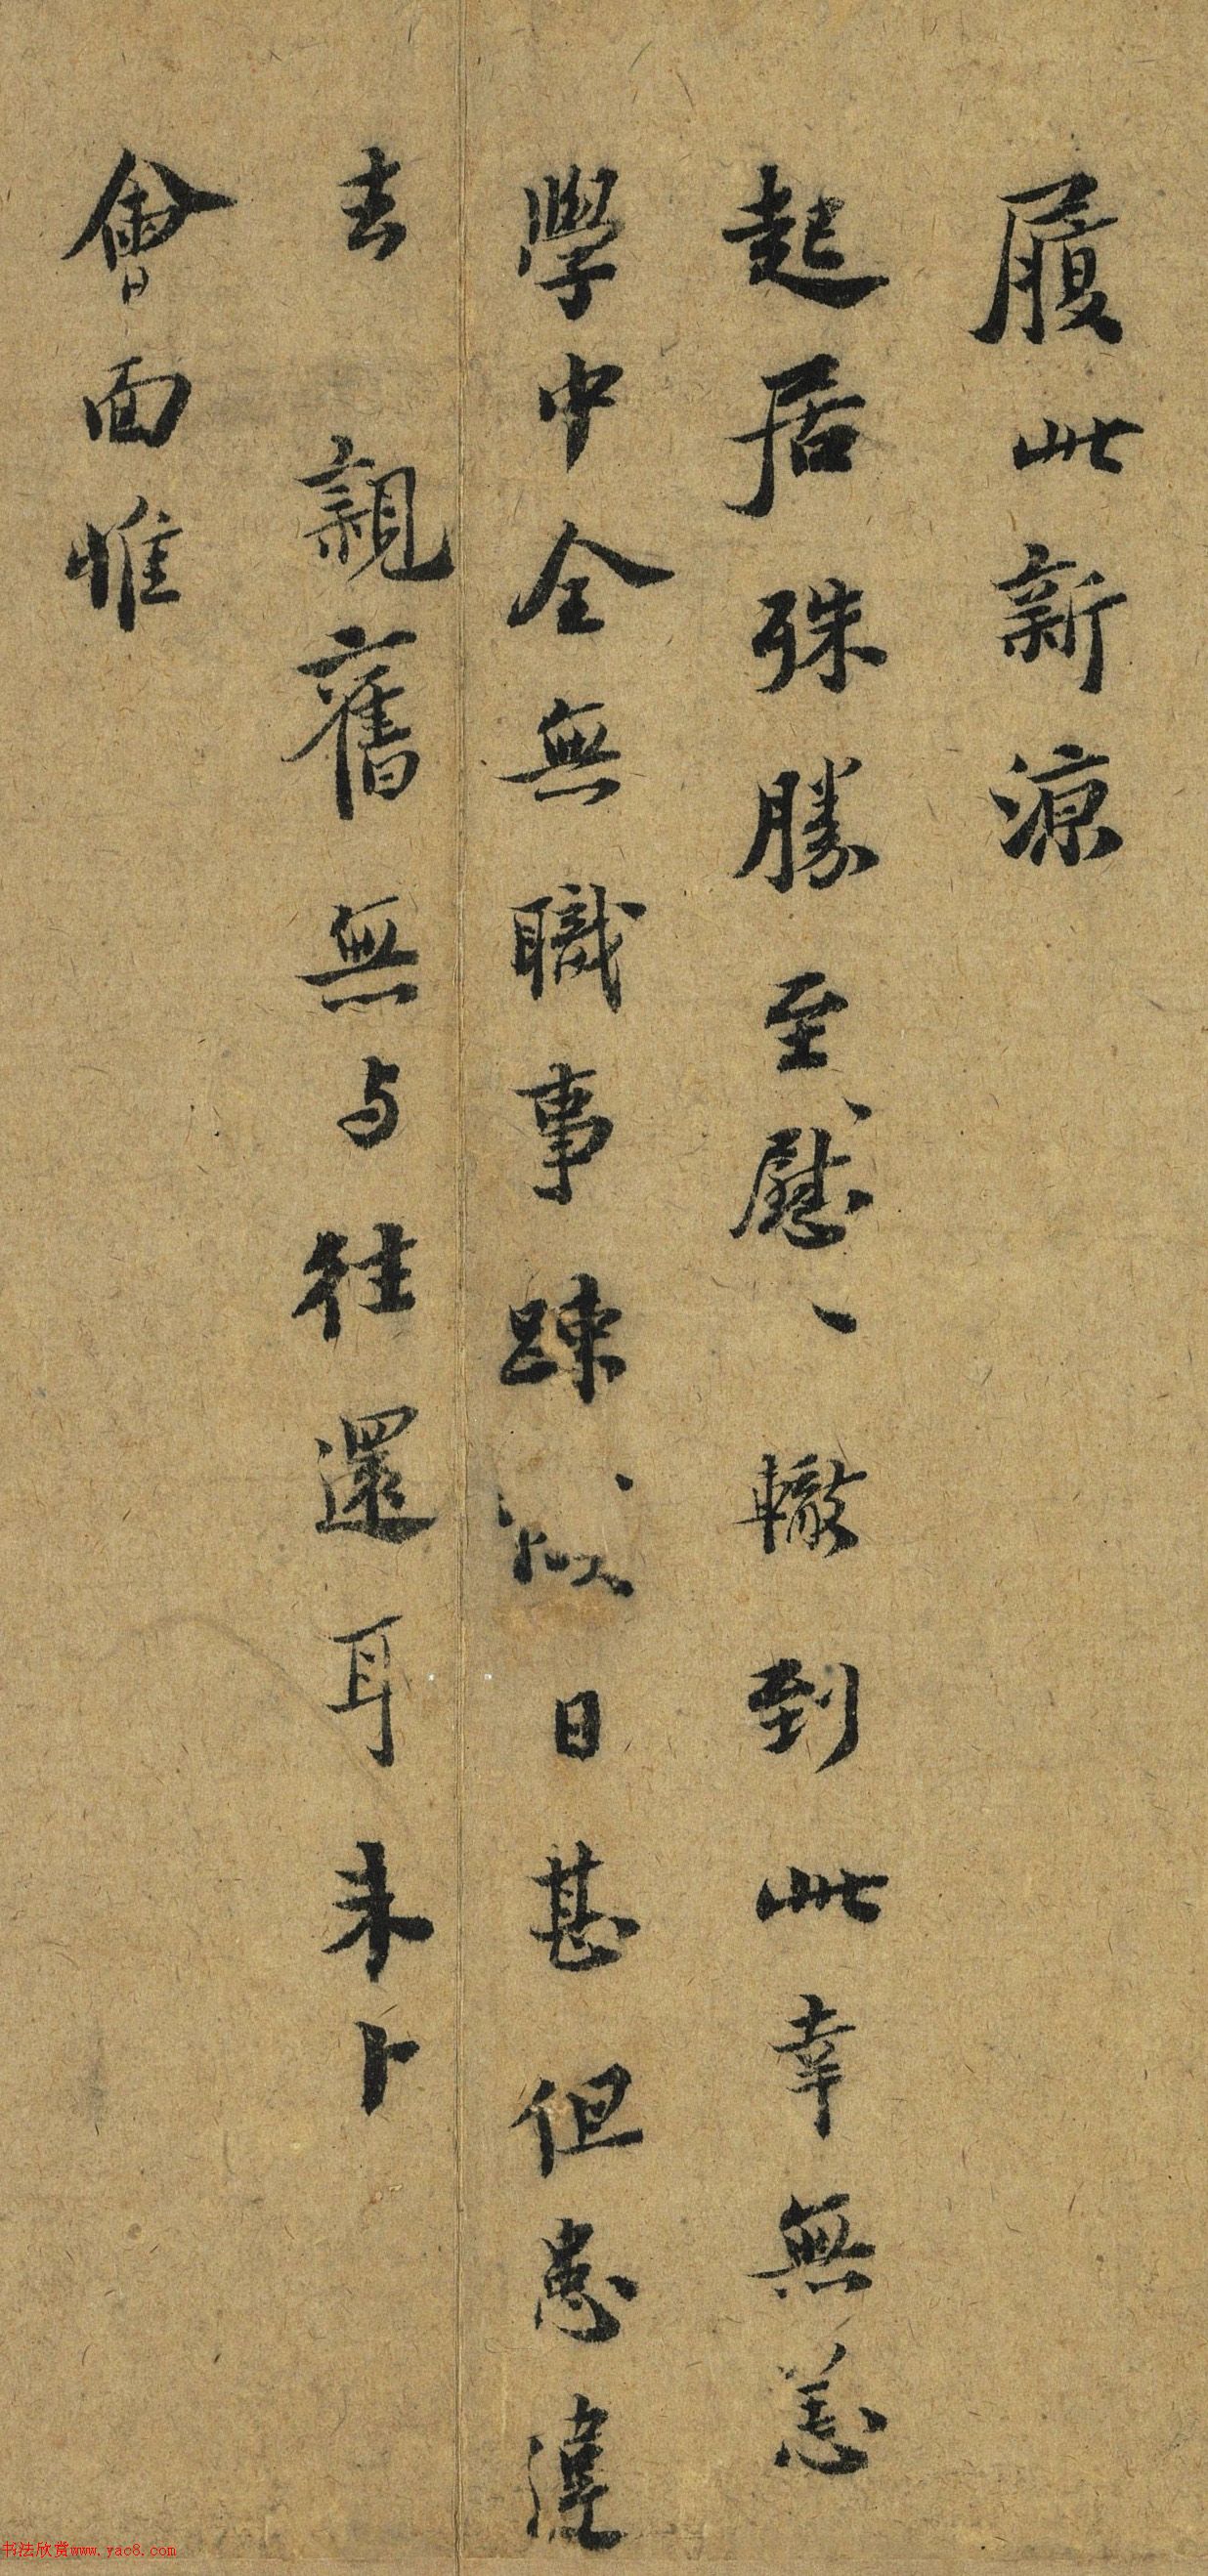 履此新涼
起居殊勝至、慰、轍到此幸無恙
學中全無職事踈日甚但患違
去親舊無与往還耳未卜
會面惟
书法欣赏www.yac8.com